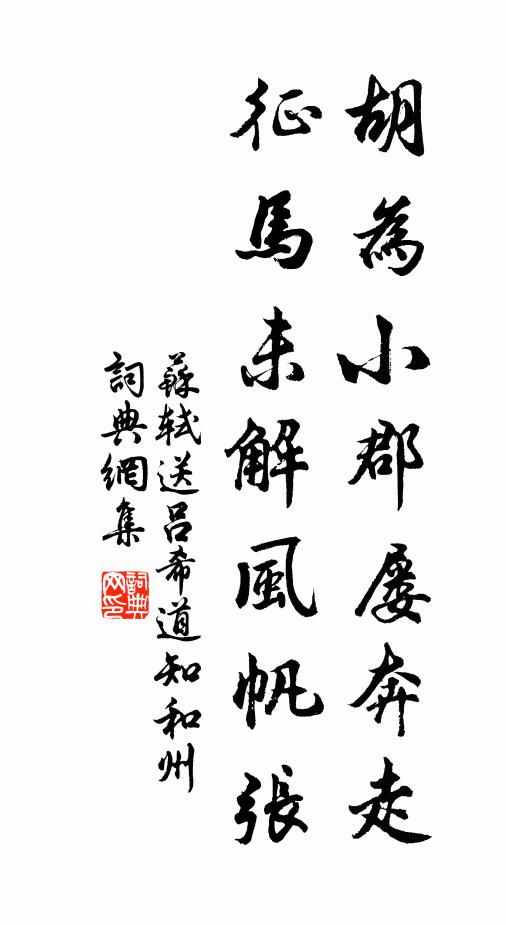 胡為小郡屢奔走
征馬未解風帆張
蘇軾送呂希道知和州
詞典網集
詞典网印